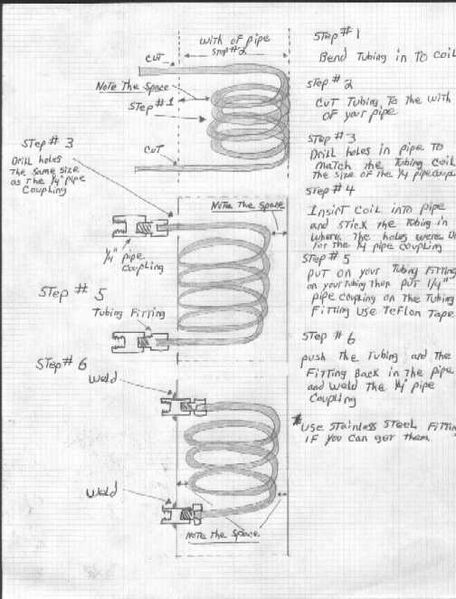 with of pipe
Step #2
CUT
Note The Space
Step #1
CUT
Step # 3
Drill holes
The Same Size
as The 1/4" pipe
Coupling
Note The Space
1/4" pipe
Coupling
Step # 5
Tubing Fitting
Step # 6
Weld
Weld
Note The Space
Step # 1
Bend Tubing in To Coil
Step # 2
CUT Tubing To the with
of your pipe
Step # 3
Drill holes in pipe to
Match the Tubing Coil
the Size of the 1/4 pipe
Step # 4
Insirt Coil into pipe
and stick the Tubing in
where the holes were
for the 1/4 pipe coupling
Step # 5
put on your Tubing Fitting
on your Tubing then put 1/4"
pipe coupling on the Tubing
Fitting use Teflon Tape
Step # 6
push the Tubing and the
Fitting Back in the pipe
and Weld the 1/4" pipe
Coupling
* Use Stainless Steel Fitting
if you can get them.